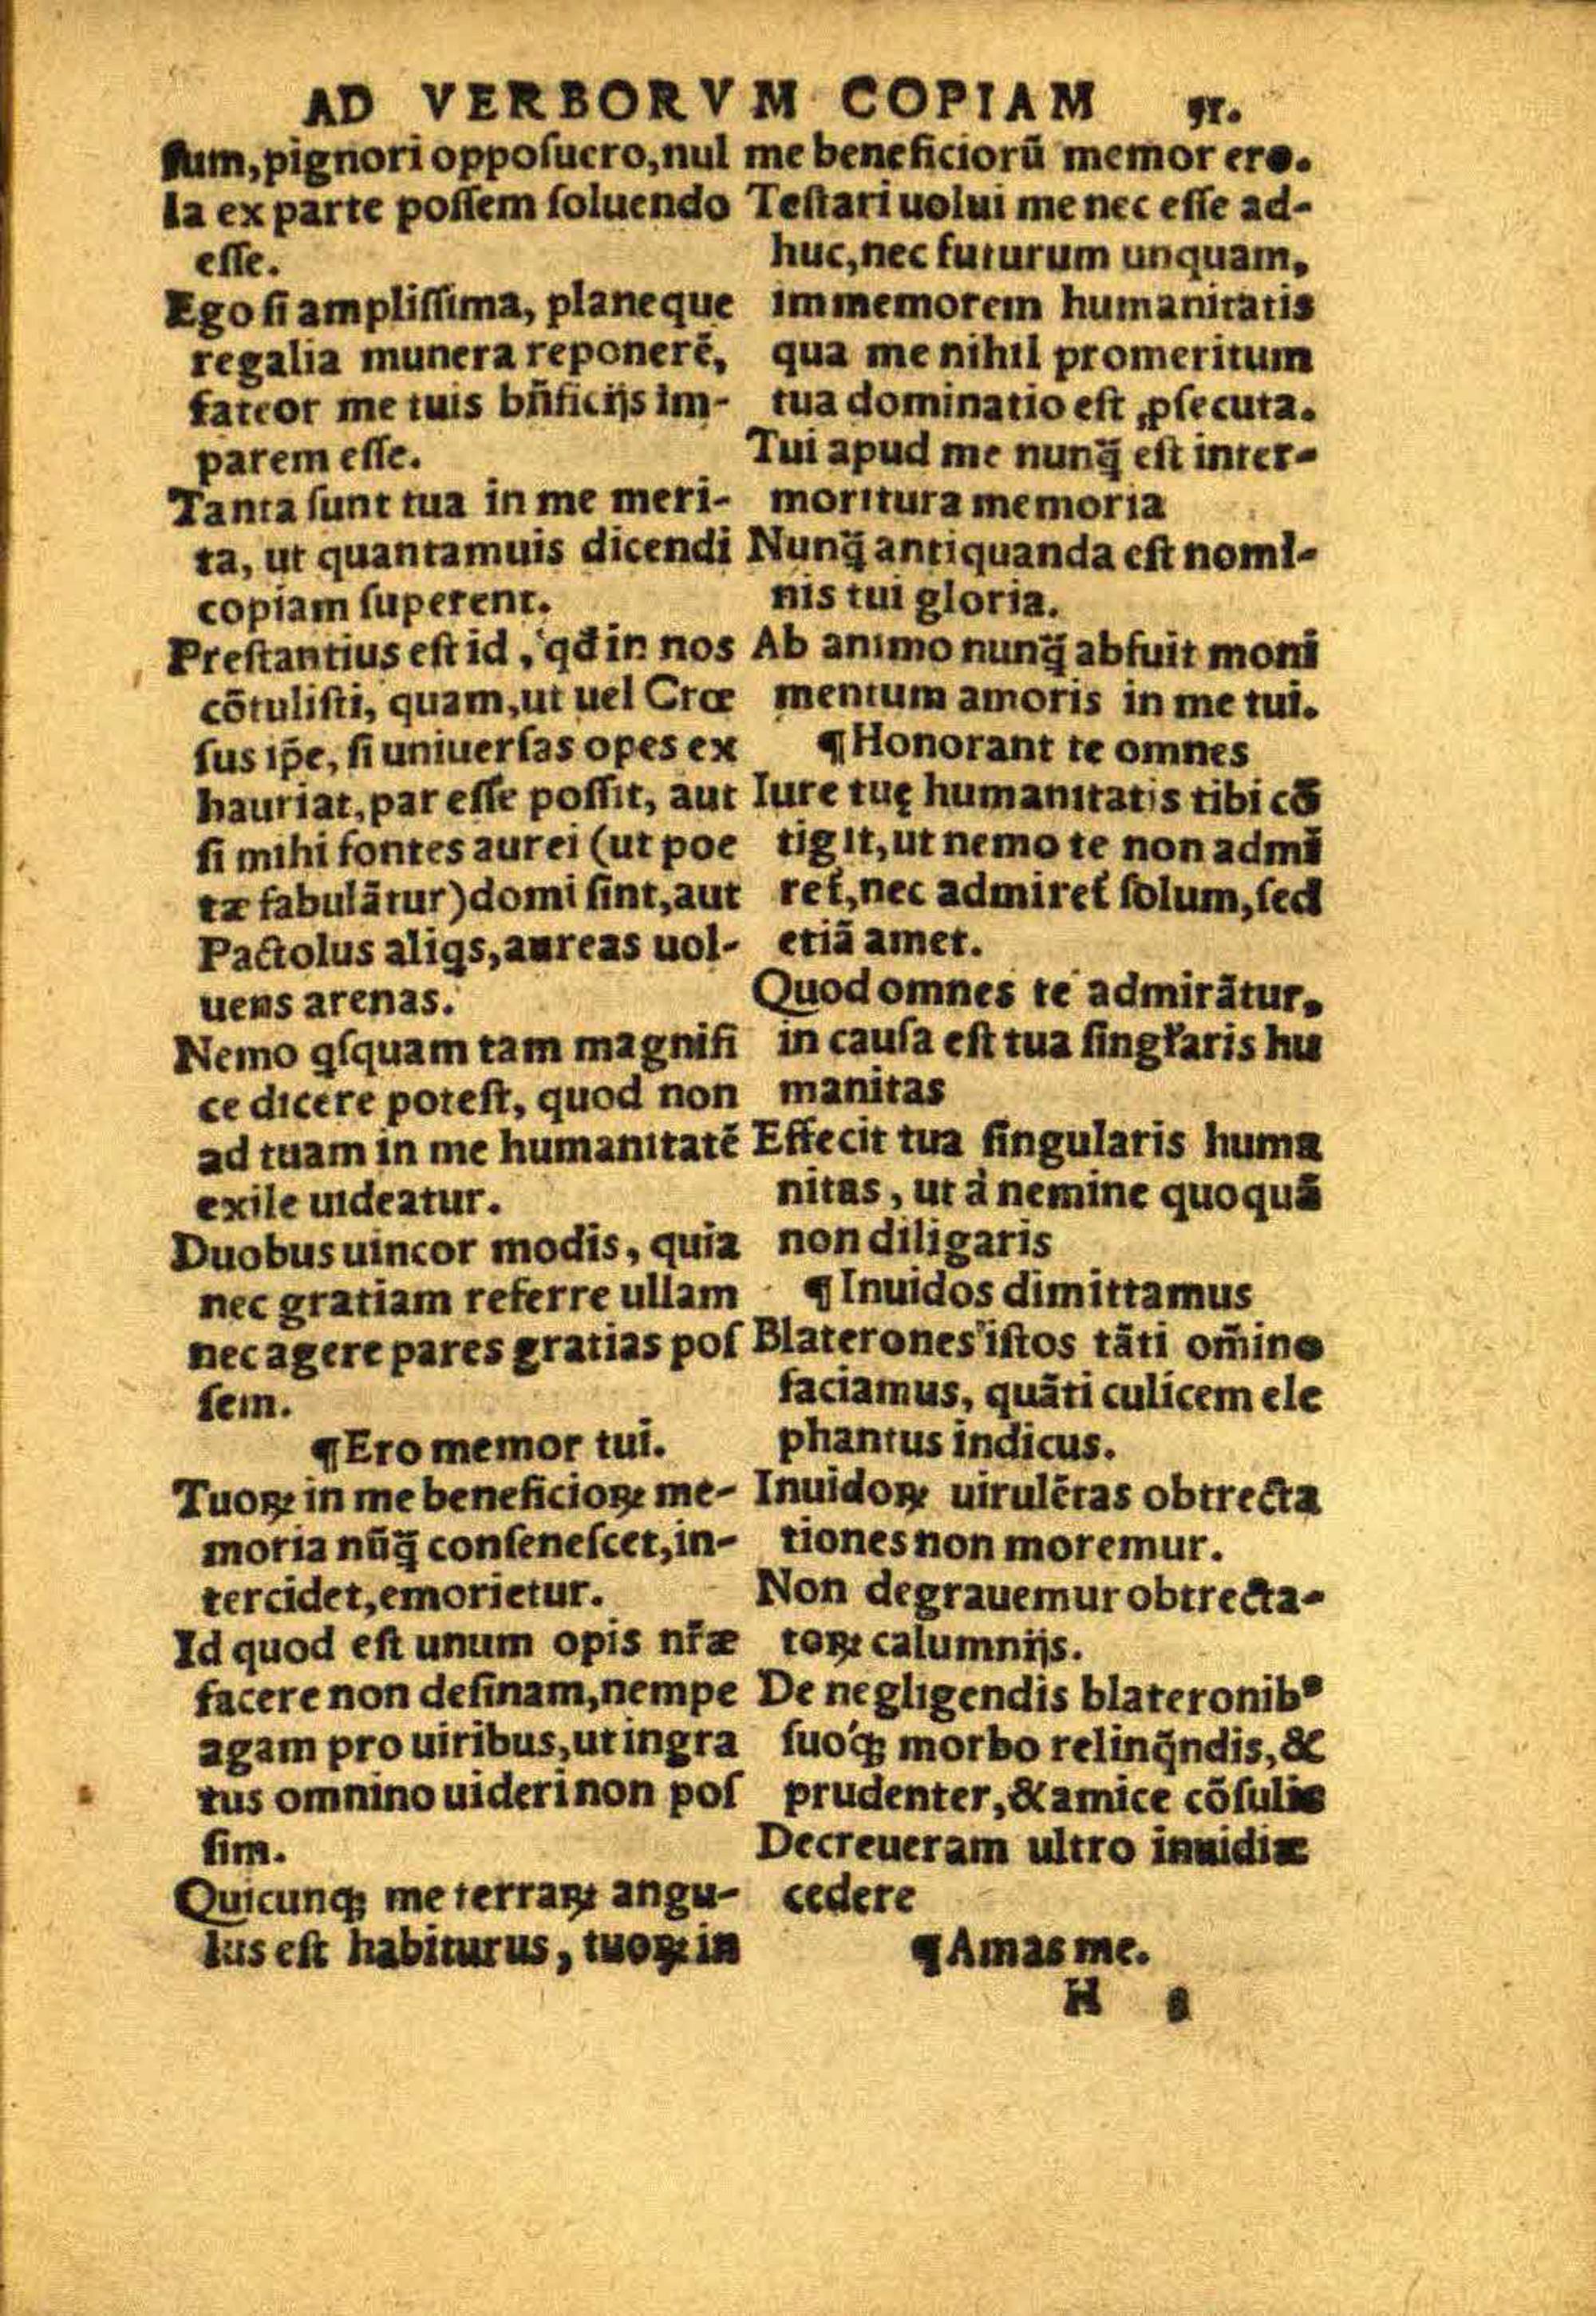 AD VERBORVM COPIAM 51.
ſtum, pignori oppoſuero, nul
la ex parte poſſem ſoluendo
eſſe.
Ego ſi ampliſſima, planeque
regalia munera reponerẽ,
fateor me tuis bñficijs im-
parem eſſe.
Tanta ſunt tua in me meri-
ta, ut quantamuis dicendi
copiam ſuperent.
Preſtantius eſt id, qđ in nos
cõtuliſti, quam, ut uel Crœ
ſus ip̃e, ſi uniuerſas opes ex
hauriat, par eſſe poſſit, aut
ſi mihi fontes aurei (ut poe
tæ fabulãtur) domi ſint, aut
Pactolus aliqs, aureas uol-
uens arenas.
Nemo qſquam tam magnifi
ce dicere poteſt, quod non
ad tuam in me humanitatẽ
exile uideatur.
Duobus uincor modis, quia
nec gratiam referre ullam
nec agere pares gratias poſ
ſem.
¶ Ero memor tui.
Tuoꝝ in me beneficioꝝ me-
moria nũq̃ conſeneſcet, in-
tercidet, emorietur.
Id quod eſt unum opis nr̃æ
facere non deſinam, nempe
agam pro uiribus, ut ingra
tus omnino uideri non poſ
ſim.
Quicunqꝫ me terraꝝ angu-
lus eſt habiturus, tuoꝝ in
me beneficiorũ memor ero.
Teſtari uolui me nec eſſe ad-
huc, nec futurum unquam,
immemorem humanitatis
qua me nihil promeritum
tua dominatio eſt ꝓſecuta.
Tui apud me nunq̃ eſt inter-
moritura memoria
Nunq̃ antiquanda eſt nomi-
nis tui gloria.
Ab animo nunq̃ abfuit moni
mentum amoris in me tui.
¶ Honorant te omnes
Iure tuę humanitatis tibi cõ
tigit, ut nemo te non admi
ret̃, nec admiret̃ ſolum, ſed
etiã amet.
Quod omnes te admirãtur,
in cauſa eſt tua ſingl̃aris hu
manitas
Effecit tua ſingularis huma
nitas, ut à nemine quoquã
non diligaris
¶ Inuidos dimittamus
Blaterones iſtos tãti om̃ino
faciamus, quãti culicem ele
phantus indicus.
Inuidoꝝ uirulẽtas obtrecta
tiones non moremur.
Non degrauemur obtrecta-
toꝝ calumnijs.
De negligendis blateronibꝰ
ſuóqꝫ morbo relinq̃ndis, &
prudenter, & amice cõſulis
Decreueram ultro inuidiæ
cedere
¶ Amas me.
H